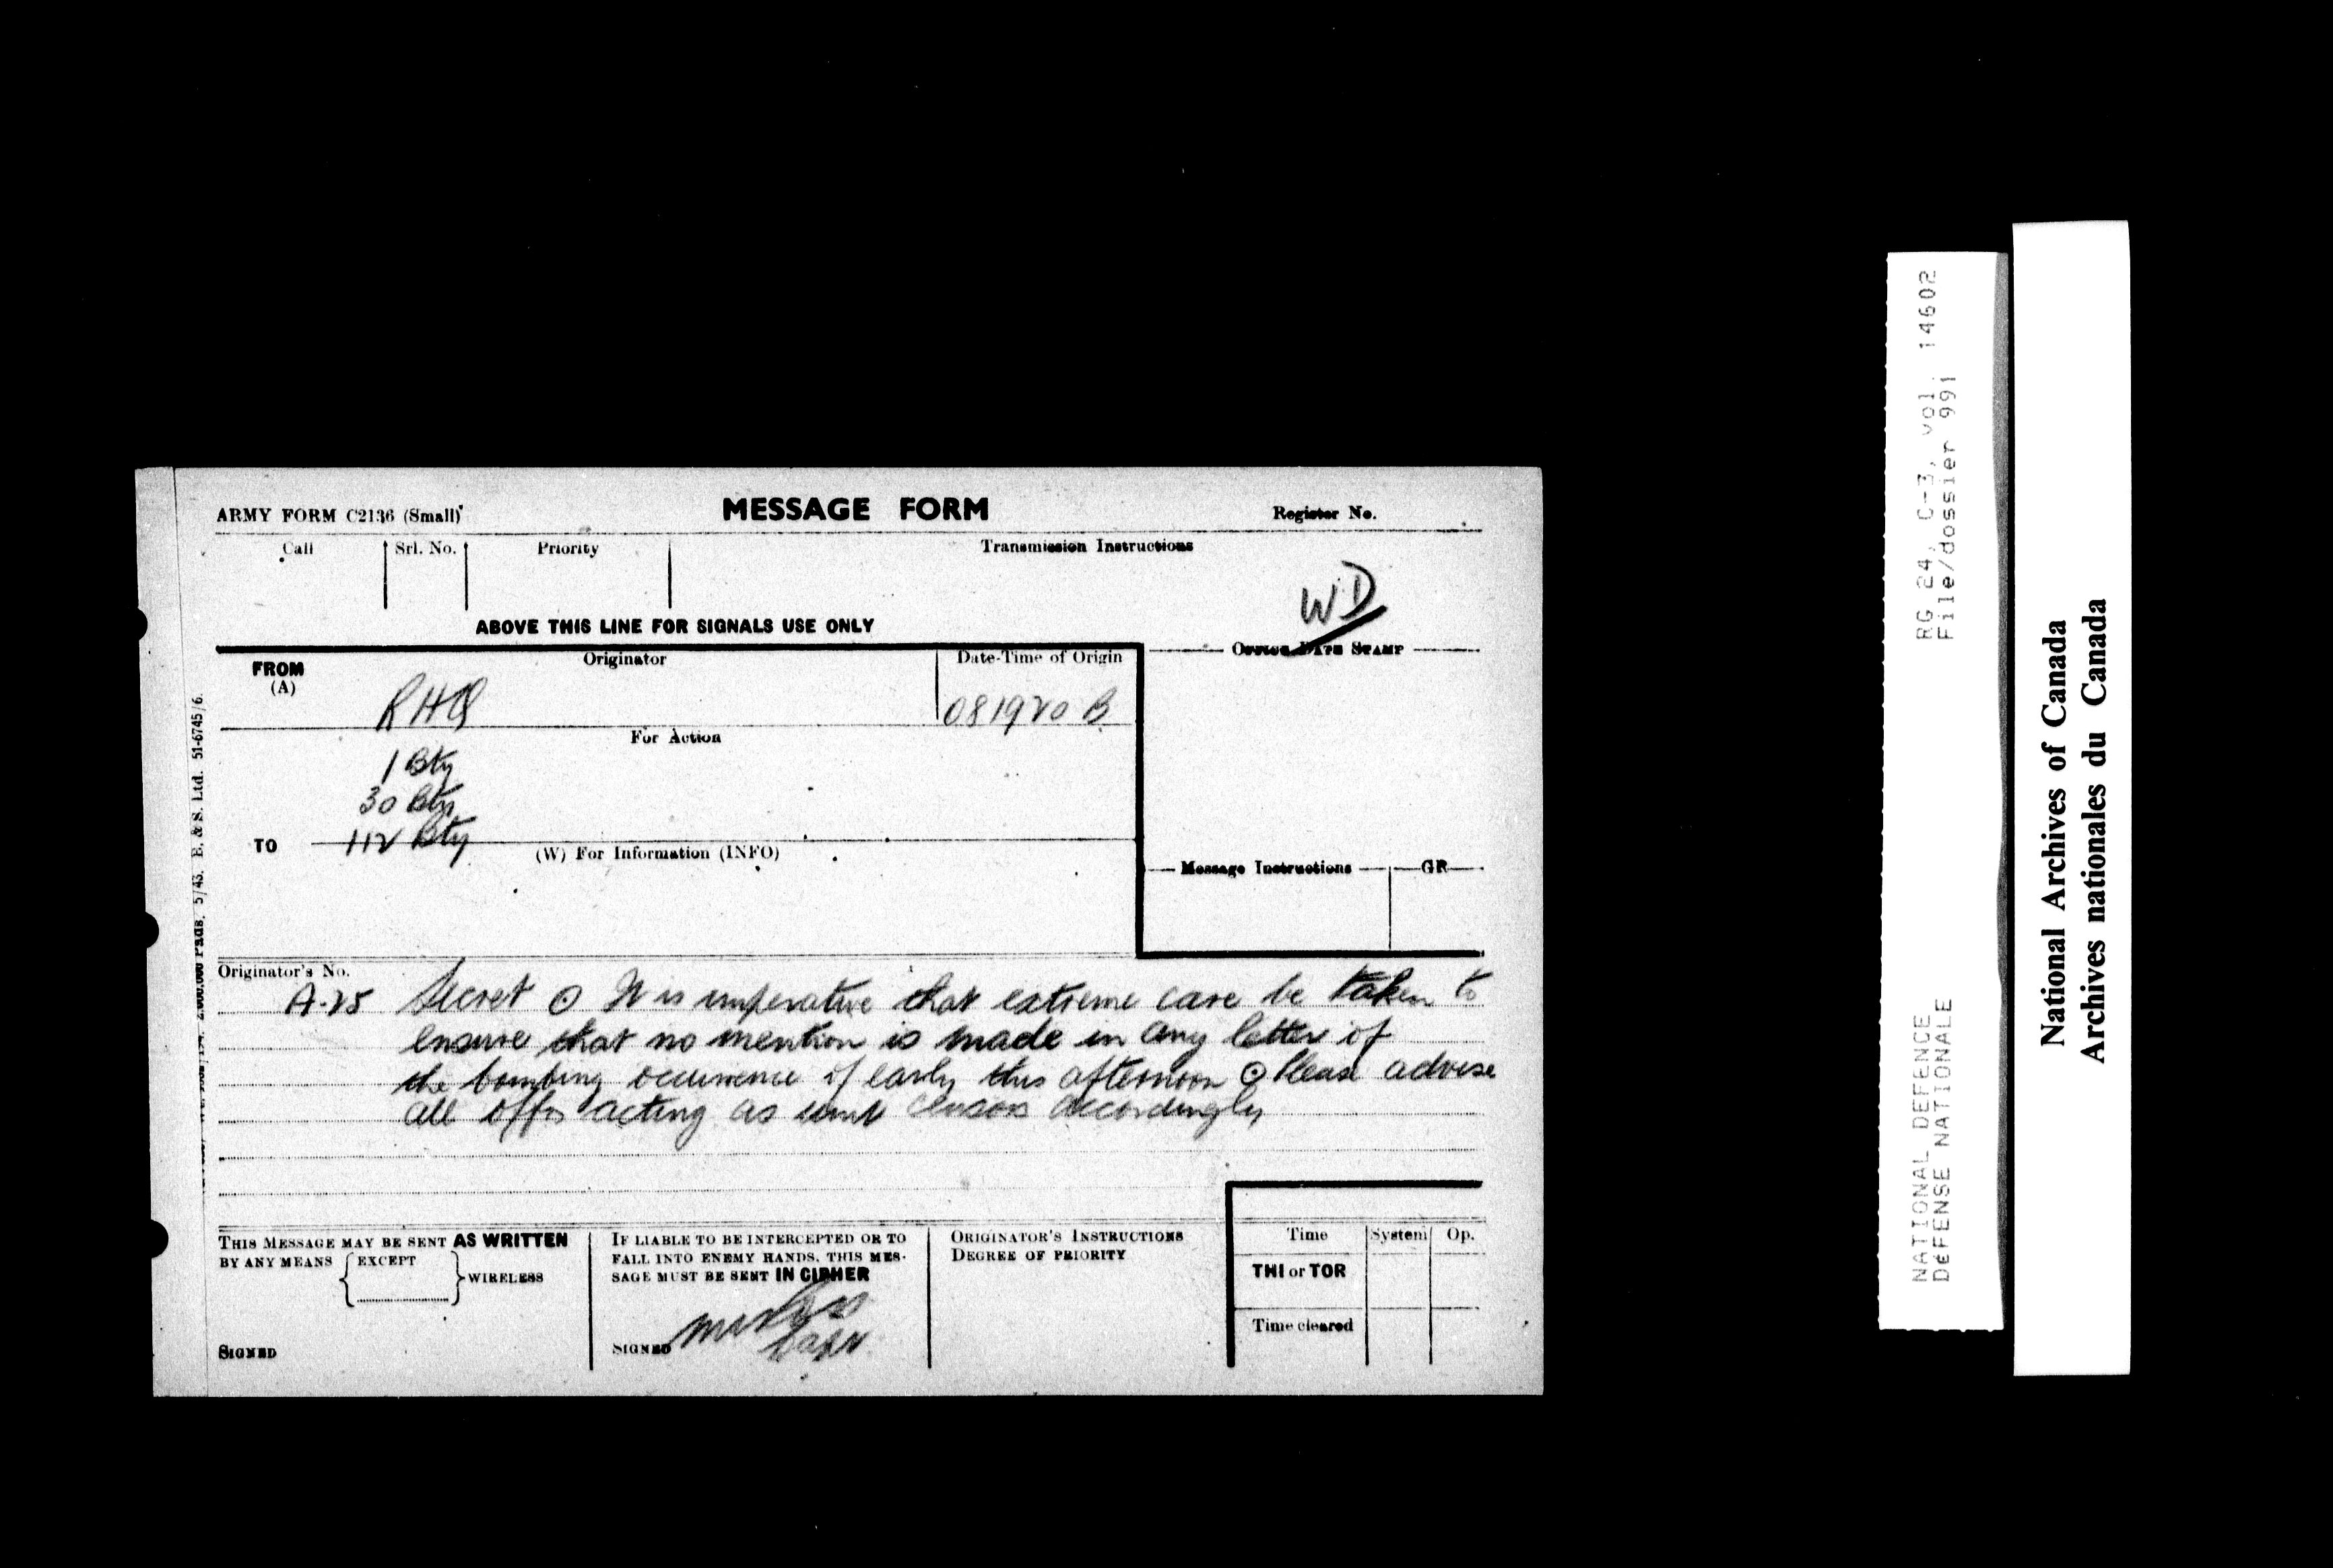 ARMY FORM C2136 (Small)
MESSAGE FORM
Register No.
Call
Srl. No.
Priority
Transmission Instructions
WD
ABOVE THIS LINE FOR SIGNALS USE ONLY
OFFICE DATE STAMP
FROM
(A)
Originator
Date-Time of Origin
RHQ
081920 B
For Action
1 Bty
30 Bty
TO
112 Bty
(W) For Information (INFO)
Message Instructions
GR
Originator's No.
A-25 Secret ⊙ It is imperative that extreme care be taken to
ensure that no mention is made in any letter of
the bombing occurence of early this afternoon ⊙ Please advise
all offrs acting as unit censors accordingly
THIS MESSAGE MAY BE SENT AS WRITTEN
BY ANY MEANS
EXCEPT
WIRELESS
SIGNED
IF LIABLE TO BE INTERCEPTED OR TO
FALL INTO ENEMY HANDS, THIS MES-
SAGE MUST BE SENT IN CIPHER
SIGNED
Capt
ORIGINATOR'S INSTRUCTIONS
DEGREE OF PRIORITY
Time
System
Op.
THI or TOR
Time cleared
5/43. B. & S. Ltd. 51-6745/6.
RG 24, C-3, vol. 14602
File/dossier 991
NATIONAL DEFENCE
DéFENSE NATIONALE
National Archives of Canada
Archives nationales du Canada